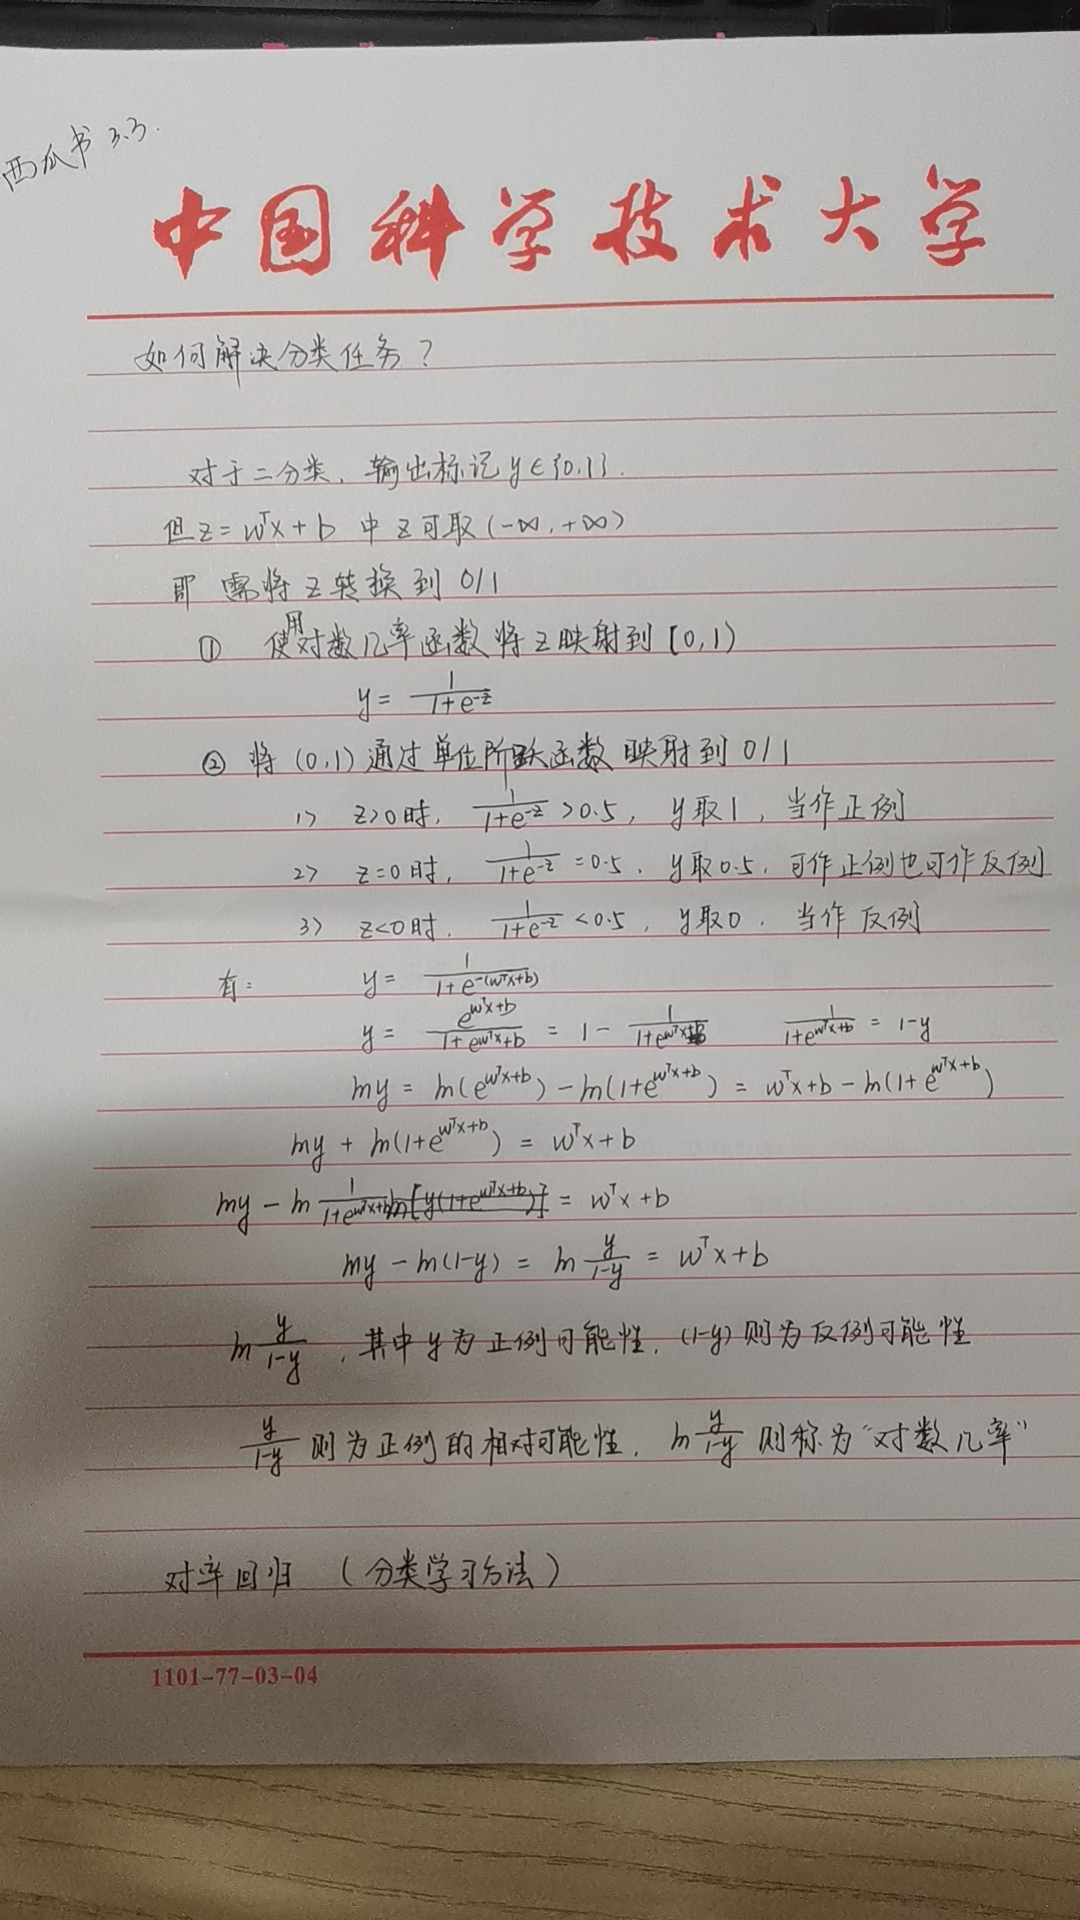 西瓜书 3.3.
中国科学技术大学
如何解决分类任务?
对于二分类、输出标记 y∈{0,1}.
但 z = wᵀx + b 中 z 可取 (-∞, +∞)
即 需将 z 转换到 0/1
① 使用对数几率函数将 z 映射到 [0,1)
y = 1/(1+e^(-z))
② 将 (0,1) 通过单位阶跃函数映射到 0/1
1> z>0时, 1/(1+e^(-z)) >0.5, y取1, 当作正例
2> z=0时, 1/(1+e^(-z)) =0.5, y取0.5, 可作正例也可作反例
3> z<0时, 1/(1+e^(-z)) <0.5, y取0, 当作反例
有: y = 1/(1+e^(-(wᵀx+b)))
y = e^(wᵀx+b)/(1+e^(wᵀx+b)) = 1 - 1/(1+e^(wᵀx+b)) 1/(1+e^(wᵀx+b)) = 1-y
lny = ln(e^(wᵀx+b)) - ln(1+e^(wᵀx+b)) = wᵀx+b - ln(1+e^(wᵀx+b))
lny + ln(1+e^(wᵀx+b)) = wᵀx+b
lny - ln 1/(1+e^(wᵀx+b)) = wᵀx+b
lny - ln(1-y) = ln y/(1-y) = wᵀx+b
ln y/(1-y), 其中 y 为正例可能性, (1-y) 则为反例可能性
y/(1-y) 则为正例的相对可能性, ln y/(1-y) 则称为“对数几率”
对率回归 (分类学习方法)
1101-77-03-04